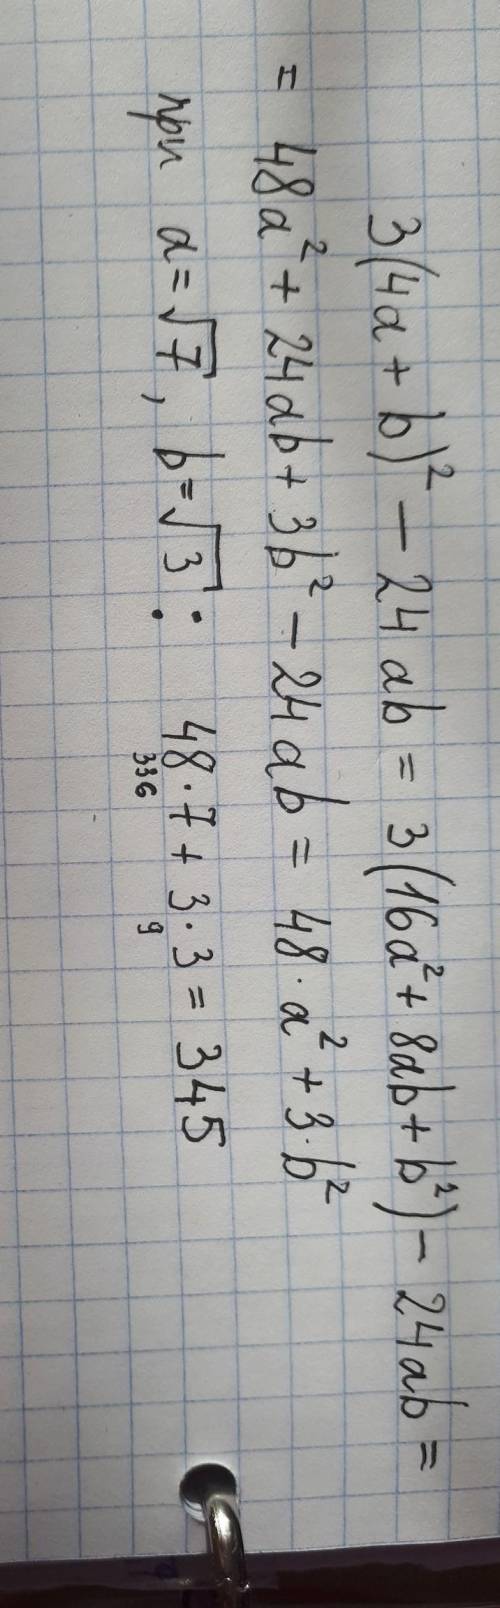 3(4a + b)² - 24ab = 3(16a² + 8ab + b²) - 24ab =
= 48a² + 24ab + 3b² - 24ab = 48·a² + 3·b²
при a=√7, b=√3: 48·7 + 3·3 = 345
336 9